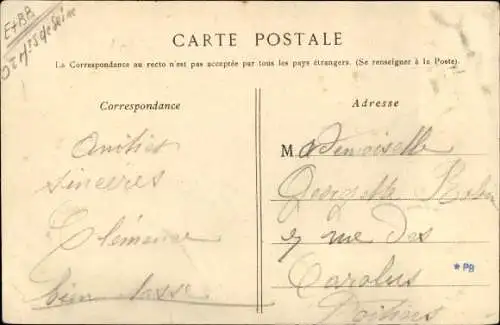 CARTE POSTALE
La Correspondance au recto n'est pas acceptée par tous les pays étrangers. (Se renseigner à la Poste).
Correspondance
Amitiés
sincères
Clémence
bien lasse
Adresse
Mademoiselle
Georgette
rue des
Carolus
Poitiers
*PB